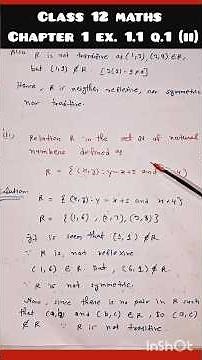 Class 12 maths
Chapter 1 ex. 1.1 Q.1 (II)
Also R is not transitive as (1,3), (3,9) ∈ R,
but (1,9) ∉ R [3(1)-9≠0]
Hence, R is neither reflexive, nor symmetric
nor transitive.
(ii) Relation R in the set of natural
numbers defined as
R = {(x,y): y = x+5 and x<4}
Solution:
R = {(x,y): y = x+5 and x<4}
R = {(1,6), (2,7), (3,8)}
It is seen that (1,1) ∉ R
∵ R is not reflexive
(1,6) ∈ R But, (6,1) ∉ R
∵ R is not symmetric.
Now, since there is no pair in R such
that (a,b) and (b,c) ∈ R, so (a,c)
∉ R ∵ R is not transitive
KINEMASTER